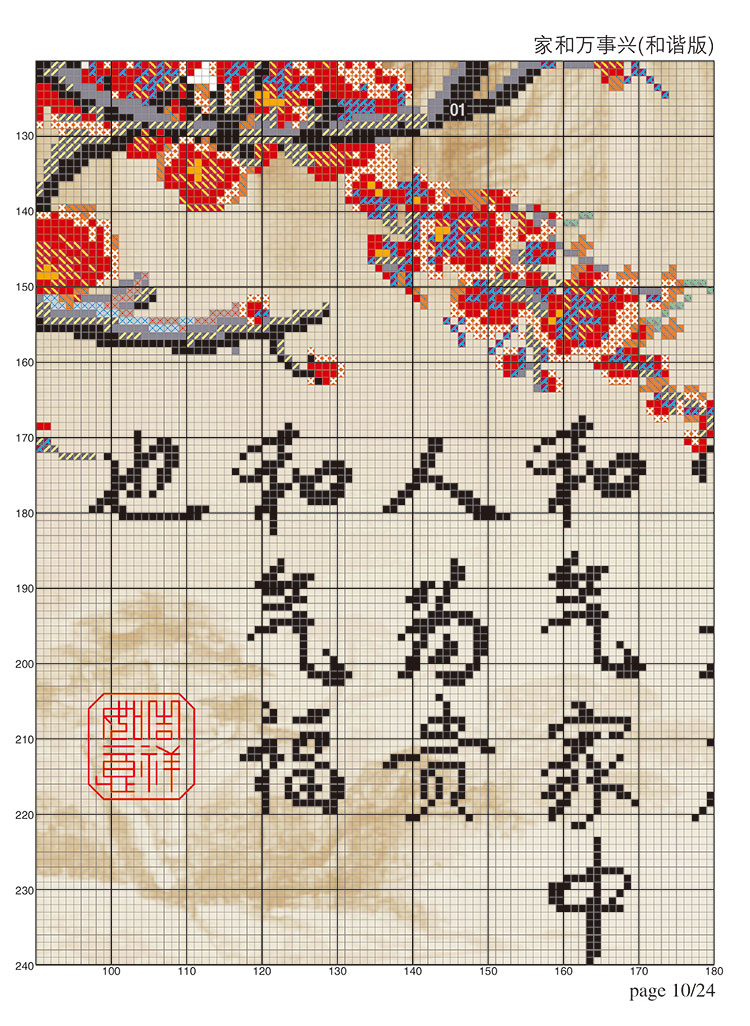 家和万事兴(和谐版)
01
130
140
150
160
170
180
190
200
210
220
230
240
和气家中
人为贵
和气福
也
100
110
120
130
140
150
160
170
180
page 10/24